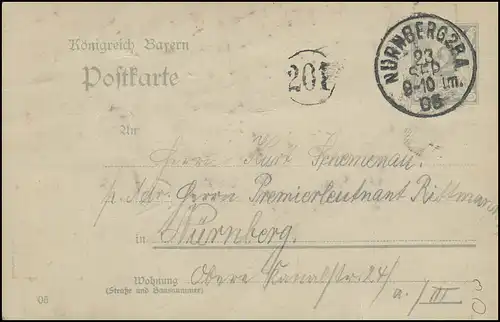 Königreich Bayern
Postkarte
201
NÜRNBERG 2 B.A.
23
SEP
9-10 Vm.
06
An
Herrn Kurt
p. Adr. Herrn Premierleutnant Rittmann
in Nürnberg.
Wohnung Obere Kanalstr. 24/
(Straße und Hausnummer) a./III
06